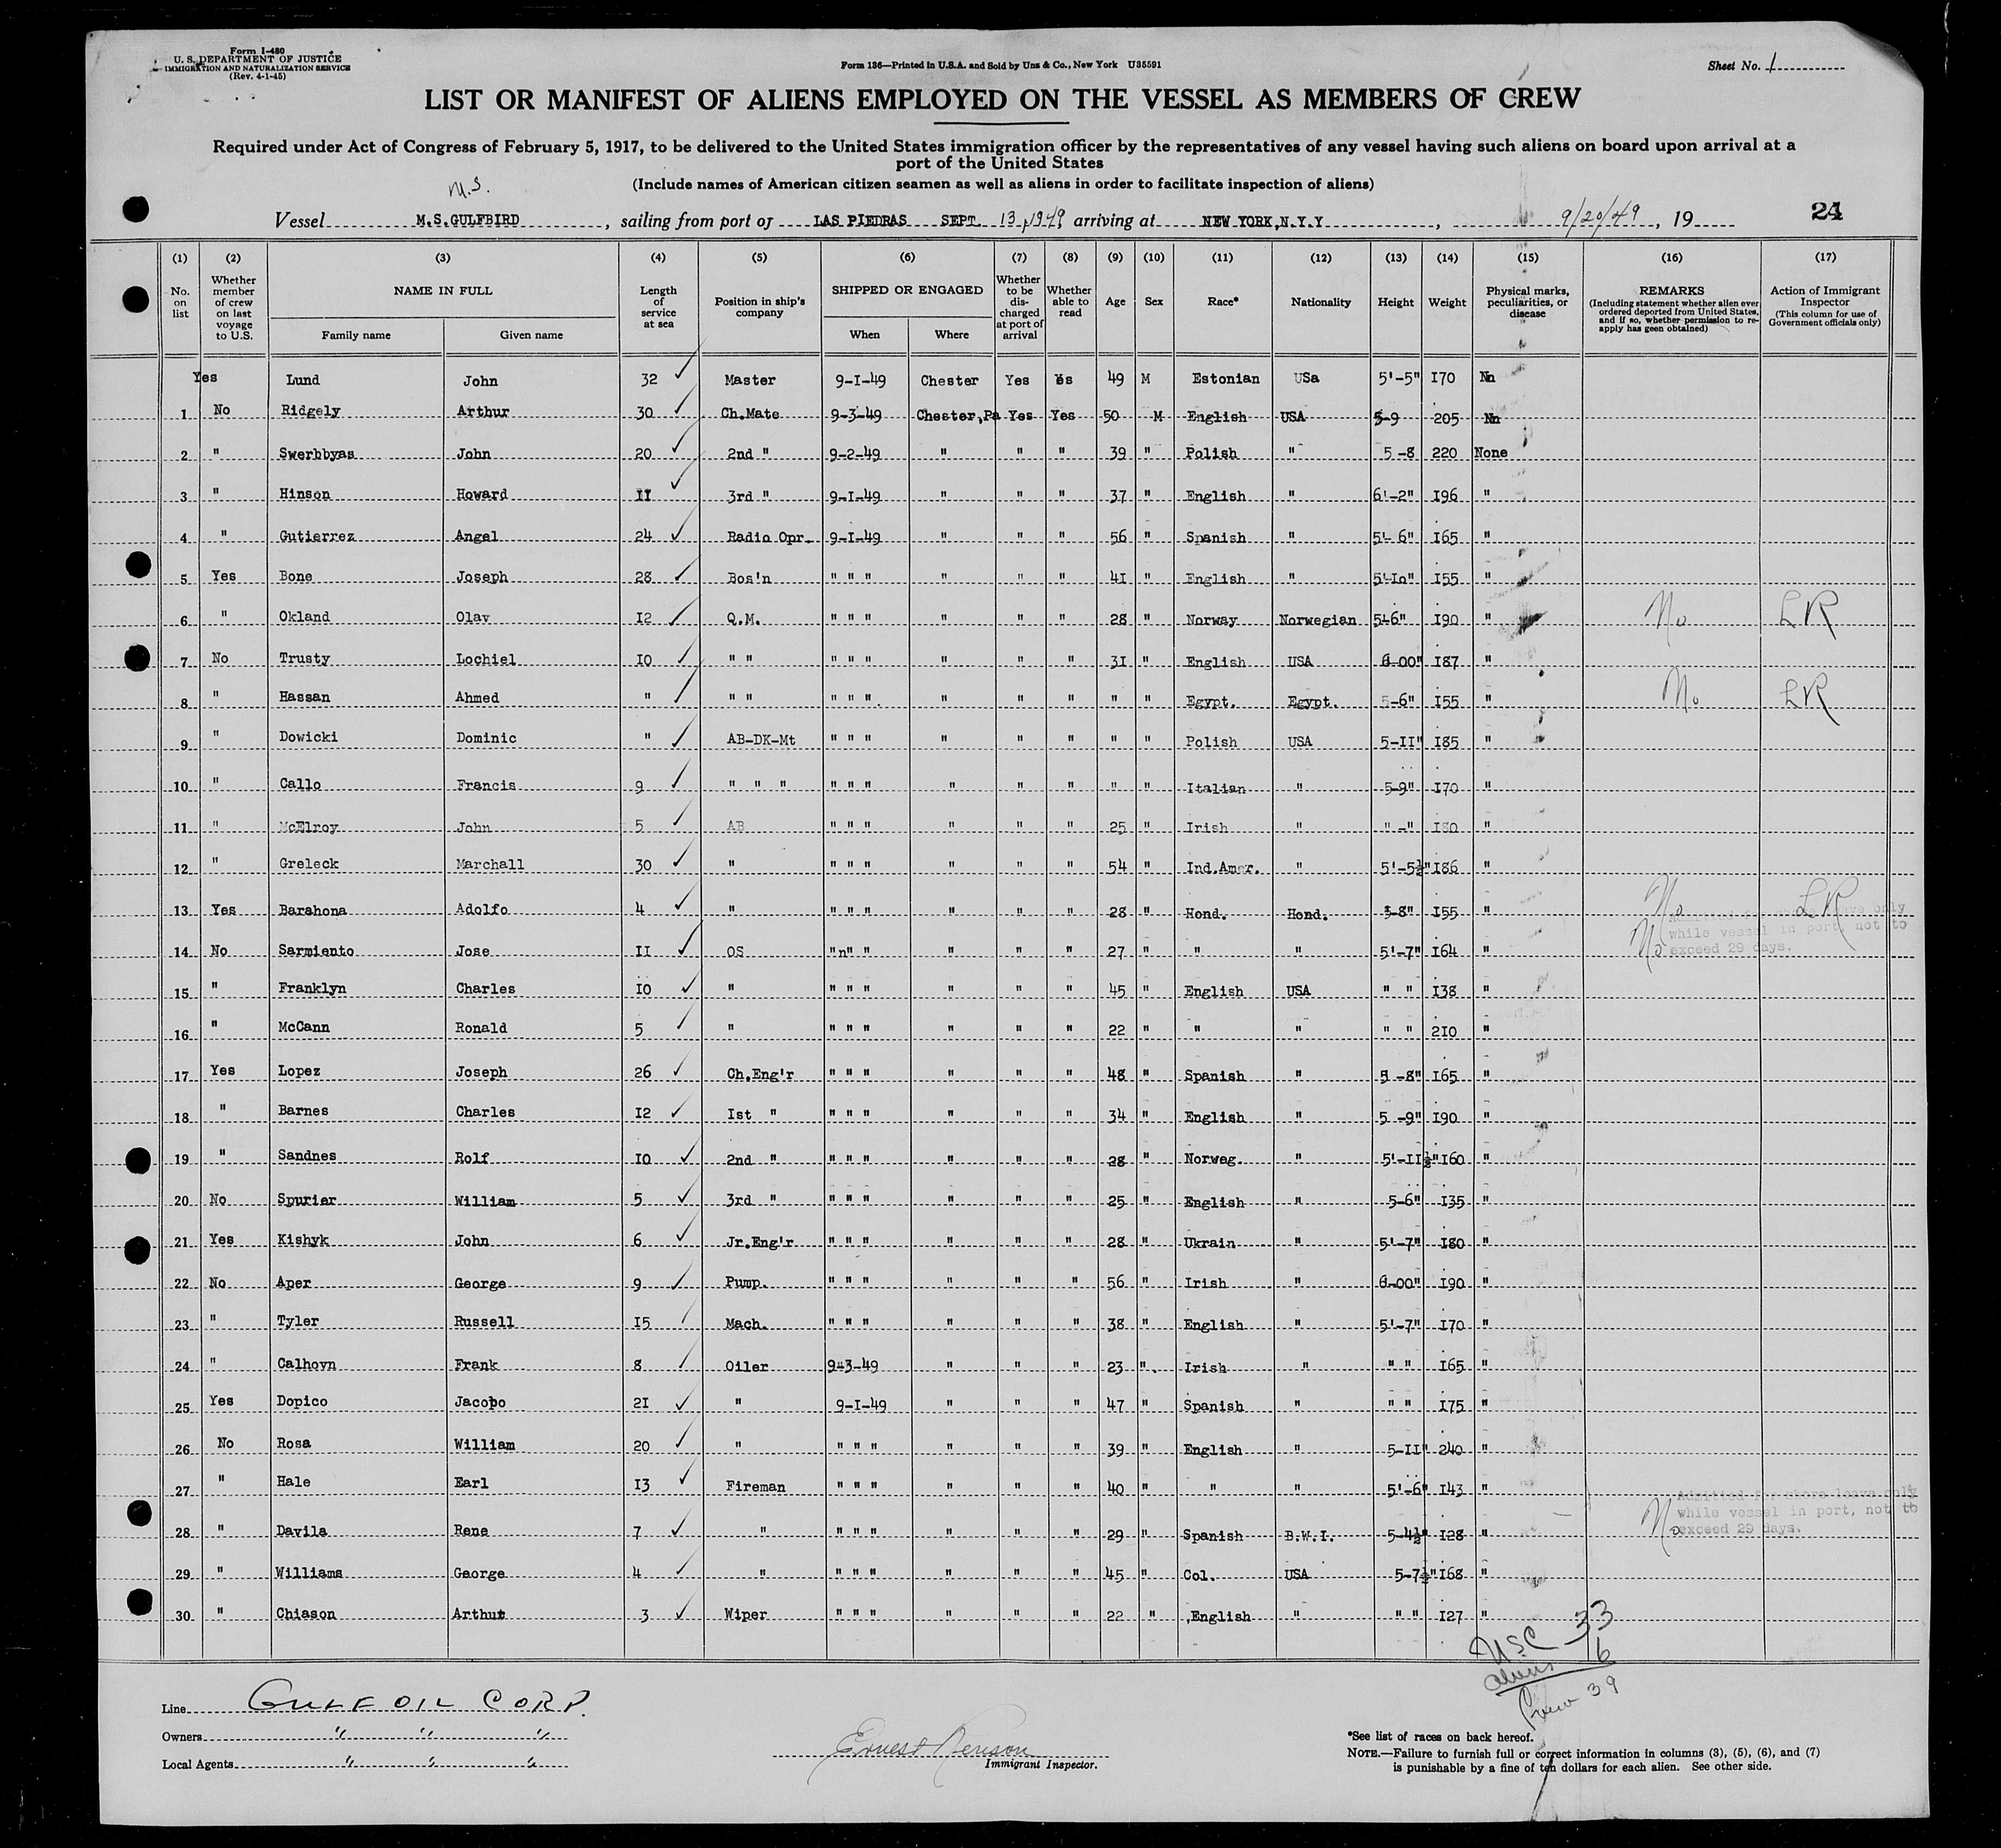 Form I-480
U. S. DEPARTMENT OF JUSTICE
IMMIGRATION AND NATURALIZATION SERVICE
(Rev. 4-1-45)
Form 136—Printed in U.S.A. and Sold by Unz & Co., New York U35591
Sheet No. 1
LIST OR MANIFEST OF ALIENS EMPLOYED ON THE VESSEL AS MEMBERS OF CREW
Required under Act of Congress of February 5, 1917, to be delivered to the United States immigration officer by the representatives of any vessel having such aliens on board upon arrival at a
port of the United States
(Include names of American citizen seamen as well as aliens in order to facilitate inspection of aliens)
M.S.
Vessel M.S.GULFBIRD, sailing from port of LAS PIEDRAS SEPT. 13, 1949 arriving at NEW YORK,N.Y.Y, 9/20/49, 19
24
(1) (2) (3) (4) (5) (6) (7) (8) (9) (10) (11) (12) (13) (14) (15) (16) (17)
No. on list
Whether member of crew on last voyage to U.S.
NAME IN FULL
Family name Given name
Length of service at sea
Position in ship's company
SHIPPED OR ENGAGED
When Where
Whether to be discharged at port of arrival
Whether able to read
Age
Sex
Race*
Nationality
Height
Weight
Physical marks, peculiarities, or disease
REMARKS
(Including statement whether alien ever ordered deported from United States, and if so, whether permission to re-apply has geen obtained)
Action of Immigrant Inspector
(This column for use of Government officials only)
Yes Lund John 32 ✓ Master 9-I-49 Chester Yes Yes 49 M Estonian USa 5'-5" I70 Nn
1 No Ridgely Arthur 30 ✓ Ch.Mate 9-3-49 Chester,Pa Yes Yes 50 M English USA 5-9 205 Nn
2 " Swerbbyas John 20 ✓ 2nd " 9-2-49 " " " 39 " Polish " 5-8 220 None
3 " Hinson Howard II ✓ 3rd " 9-I-49 " " " 37 " English " 6'-2" I96 "
4 " Gutierrez Angel 24 ✓ Radio Opr. 9-I-49 " " " 56 " Spanish " 5'-6" I65 "
5 Yes Bone Joseph 28 ✓ Bos'n " " " " " " 4I " English " 5'-Io" I55 "
6 " Okland Olav I2 ✓ Q.M. " " " " " " 28 " Norway Norwegian 5-6" I90 " No LR
7 No Trusty Lochiel I0 ✓ " " " " " " " " 3I " English USA 6-00" I87 "
8 " Hassan Ahmed " ✓ " " " " " " " " " " Egypt. Egypt. 5-6" I55 " No LR
9 " Dowicki Dominic " ✓ AB-DK-Mt " " " " " " " " Polish USA 5-II" I85 "
10 " Callo Francis 9 ✓ " " " " " " " " " " " Italian " 5-9" I70 "
11 " McElroy John 5 ✓ AB " " " " " " 25 " Irish " " -" I80 "
12 " Greleck Marchall 30 ✓ " " " " " " " 54 " Ind.Amer. " 5'-5½" I86 "
13 Yes Barahona Adolfo 4 ✓ " " " " " " " 28 " Hond. Hond. 5-8" I55 " No LR
Admitted for shore leave only
while vessel in port, not to
exceed 29 days.
14 No Sarmiento Jose II ✓ OS "n" " " " " 27 " " " 5'-7" I64 " No
15 " Franklyn Charles I0 ✓ " " " " " " " 45 " English USA " " I38 "
16 " McCann Ronald 5 ✓ " " " " " " " 22 " " " " " 2I0 "
17 Yes Lopez Joseph 26 ✓ Ch.Eng'r " " " " " " 48 " Spanish " 5 -8" I65 "
18 " Barnes Charles I2 ✓ Ist " " " " " " " 34 " English " 5 -9" I90 "
19 " Sandnes Rolf I0 ✓ 2nd " " " " " " " 28 " Norweg. " 5'-II½" I60 "
20 No Spurier William 5 ✓ 3rd " " " " " " " 25 " English " 5-6" I35 "
21 Yes Kishyk John 6 ✓ Jr.Eng'r " " " " " " 28 " Ukrain " 5'-7" I80 "
22 No Aper George 9 ✓ Pump. " " " " " " 56 " Irish " 6-00" I90 "
23 " Tyler Russell I5 ✓ Mach. " " " " " " 38 " English " 5'-7" I70 "
24 " Calhovn Frank 8 ✓ Oiler 9-3-49 " " " 23 " Irish " " " I65 "
25 Yes Dopico Jacobo 2I ✓ " 9-I-49 " " " 47 " Spanish " " " I75 "
26 No Rosa William 20 ✓ " " " " " " " 39 " English " 5-II" 240 "
27 " Hale Earl I3 ✓ Fireman " " " " " " 40 " " " 5'-6" I43 "
Admitted for shore leave only
while vessel in port, not to
exceed 29 days.
28 " Davila Rene 7 ✓ " " " " " " " 29 " Spanish B.W.I. 5-4½" I28 " No
29 " Williams George 4 ✓ " " " " " " " 45 " Col. USA 5-7½" I68 "
30 " Chiason Arthut 3 ✓ Wiper " " " " " " 22 " ,English " " " I27 "
USC 33
aliens 6
Crew 39
Line GULF OIL CORP.
Owners " " "
Local Agents " " "
Ernest Renison
Immigrant Inspector.
*See list of races on back hereof.
NOTE.—Failure to furnish full or correct information in columns (3), (5), (6), and (7)
is punishable by a fine of ten dollars for each alien. See other side.